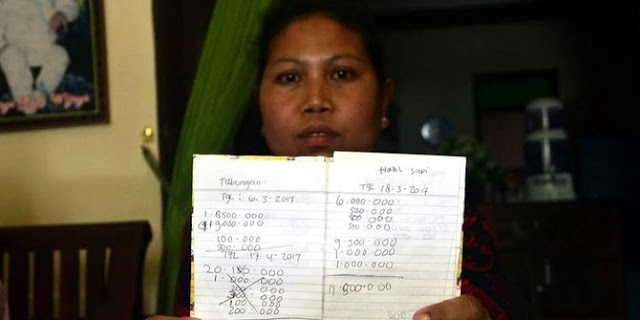 Tabungan
Tgl : 6-3-2017
1.8500.000
9000.000
100.000
500.000
Tgl 17-4-2017
20.180.000
1.000.000
200
300.000
100.000
200.000
Hasil Sapi
Tgl 18-3-2017
6.000.000
500.000
500.000
500.000
9.500.000
1.000.000
1.000.000
11.800.000